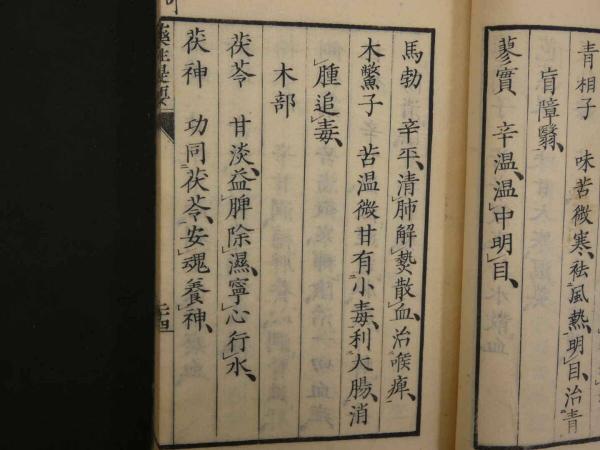 青相子 味苦微寒、祛風熱、明目、治青
盲障翳、
蓼實 辛温、温中明目、
馬勃 辛平、清肺解熱散血、治喉痺、
木鱉子 苦温微甘有小毒、利大腸、消
腫追毒、
木部
茯苓 甘淡、益脾除濕、寧心行水、
茯神 功同茯苓、安魂養神、
藥性提要
二十四